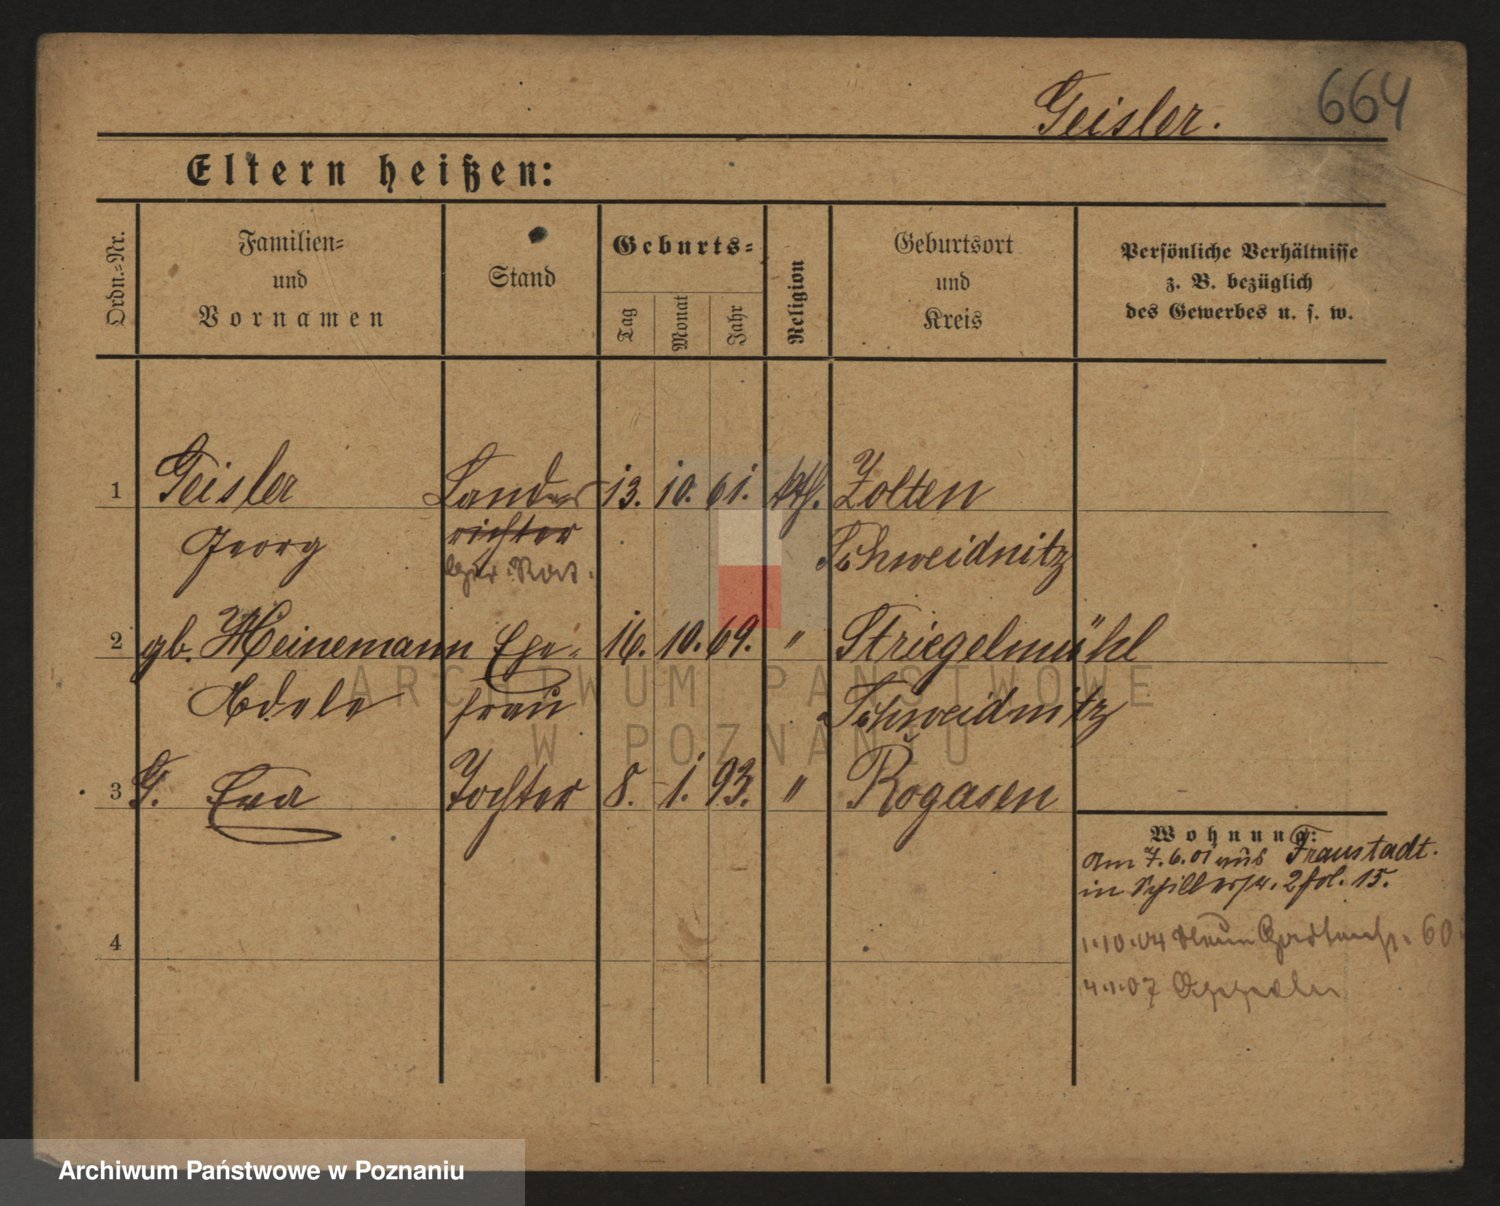 Geisler. 664
Eltern heißen:
Ordn.=Nr.
Familien=
und
Vornamen
Stand
Geburts=
Tag
Monat
Jahr
Religion
Geburtsort
und
Kreis
Persönliche Verhältnisse
z. B. bezüglich
des Gewerbes u. s. w.
1 Geisler Landes 13. 10. 61. kth. Zolten
Georg richter Schweidnitz
Ger. Rat.
2 gb. Heinemann Ehe- 16. 10. 69. " Striegelmühl
Adele frau Schweidnitz
3 G. Eva Tochter 8. 1. 93. " Rogasen
Wohnung:
Am 7. 6. 01 aus Fraustadt.
in Schillerstr. 2 fol. 15.
4
1.10.04 Neue Gartenstr. 60
07 Oppeln
ARCHIWUM PAŃSTWOWE
W POZNANIU
Archiwum Państwowe w Poznaniu